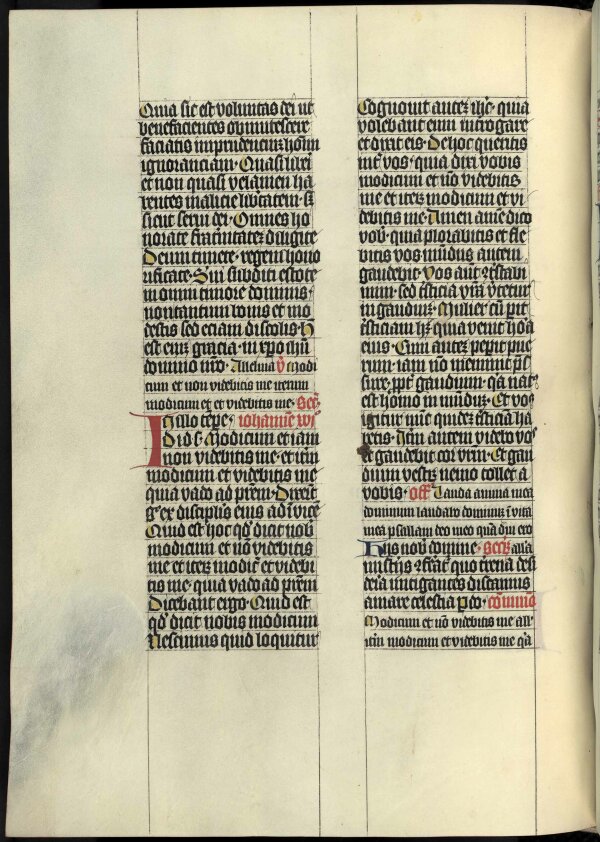 Quia sic est voluntas dei ut
benefacientes obmutescere
faciatis imprudentium hoīm
ignoranciam· Quasi liberi
et non quasi velamen ha
bentes malicie libertatem· s̄
sicut servi dei· Omnes ho
norate fraternitatē diligite
Deum timete· regem hono
rificate· Servi subditi estote
in omni timore dominis·
non tantum bonis et mo
destis sed eciam discolis· H̄
est enī gracia· in xp̄o ihū
domino nr̄o· Alleluia v̄ Modi
cum et non videbitis me iterum
modicum et et videbitis me· Sec̄
In illo tēpē· iohannē xvi
Dix̄ ih̄c Modicum et iam
non videbitis me· et itm̄
modicum et videbitis me
quia vado ad prēm· Dixēt
g̊ ex discipl̄is eius ad īvicē
Quid est hoc qd̄ dicit nob̄
modicum et nō videbitis
me et itez̄ modic̄ et videbi
tis me· quia vado ad prēm
Dicebant ergo· Quid est
qd̄ dicit nobis modicum
Nescimus quid loquitur
Cognovit autez ih̄c· quia
volebant eum int̄rogare
et dixit eis· De hoc queritis
int̄ vos· quia dixi vobis
modicum et nō videbitis
me et itez̄ modicum et vi
debitis me· Amen amē dico
vob̄· quia plorabitis et fle
bitis vos mūdus autem
gaudebit· Vos aut̄ ꝯtristabi
mini· sed t̄sticia vr̄a v̄tetur
in gaudiuz· Mulier cū parit
t̄sticiam hz̄· quia venit hōa
eius· Cum autez peperit pue
rum· iam nō meminit p̄s
sure· ppt̄ gaudium· qa nat⁹
est homo in mūdum· Et vos
igitur nūc quidez t̄sticiā ha
betis· Itm̄ autem videbo vos
et gaudebit cor vr̄m· Et gau
dium vestr̄ nemo tollet a
vobis· off̄ Lauda anima mea
dominum laudabo dominuz ī vita
mea psallam deo meo quādiu ero
His nob̄ domine· Secr̄ alla
mist̄ijs ꝯferat̄ quo terrena desi
deria mitigantes discamus
amare celestia P do· cōmunio
Modicum et nō videbitis me all'
itm̄ modicum et videbitis me qa